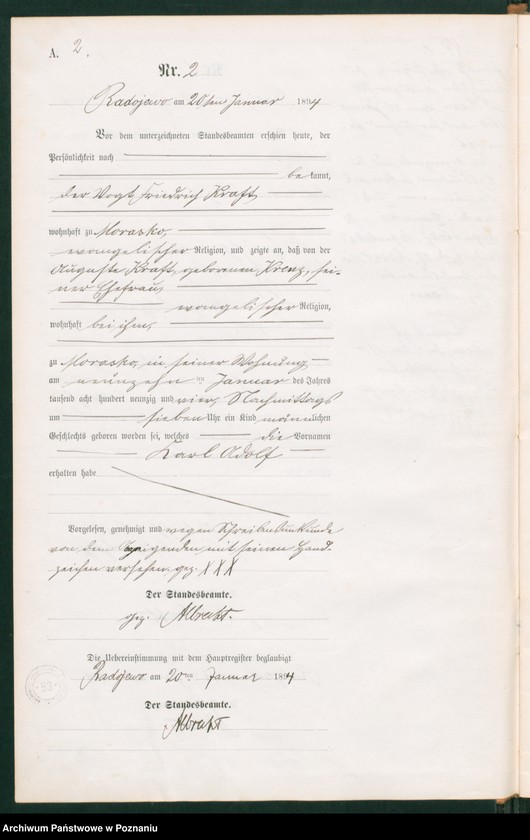 A. 2.
Nr. 2
Radojewo am 20ten Januar 1894
Vor dem unterzeichneten Standesbeamten erschien heute, der
Persönlichkeit nach
bekannt,
der Vogt Friedrich Kraft
wohnhaft zu Morasko,
evangelischer Religion, und zeigte an, daß von der
Auguste Kraft, geborenen Krenz, sei-
ner Ehefrau,
evangelischer Religion,
wohnhaft bei ihm,
zu Morasko, in seiner Wohnung
am neunzehn ten Januar des Jahres
tausend acht hundert neunzig und vier, Nachmittags
um sieben Uhr ein Kind männlichen
Geschlechts geboren worden sei, welches die Vornamen
Karl Adolf
erhalten habe
Vorgelesen, genehmigt und wegen Schreibensunkunde
von dem Anzeigenden mit seinen Hand-
zeichen versehen, gez. XXX
Der Standesbeamte.
gez. Albrecht.
Die Uebereinstimmung mit dem Hauptregister beglaubigt
Radojewo am 20ten Januar 1894
Der Standesbeamte.
Albrecht
Archiwum Państwowe w Poznaniu